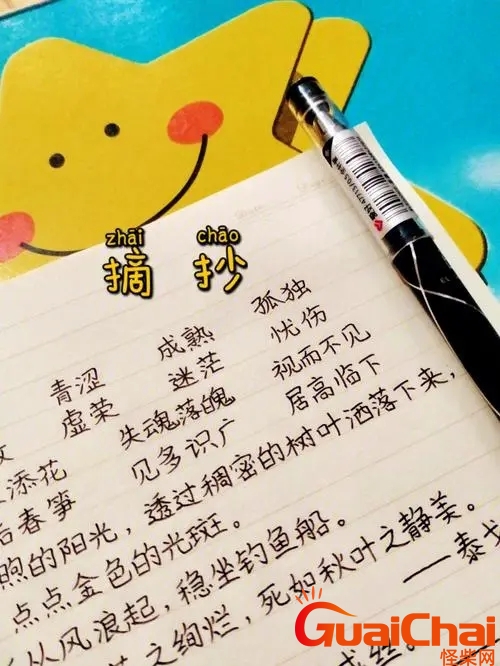 zhāi chāo
摘 抄
青涩 成熟 孤独
虚荣 迷茫 忧伤
失魂落魄 视而不见
添花 见多识广 居高临下
后春笋
煦的阳光，透过稠密的树叶洒落下来，
点点金色的光斑。
从风浪起，稳坐钓鱼船。
之绚烂，死如秋叶之静美。
——泰戈
成丝。
GuaiChai
怪柴网